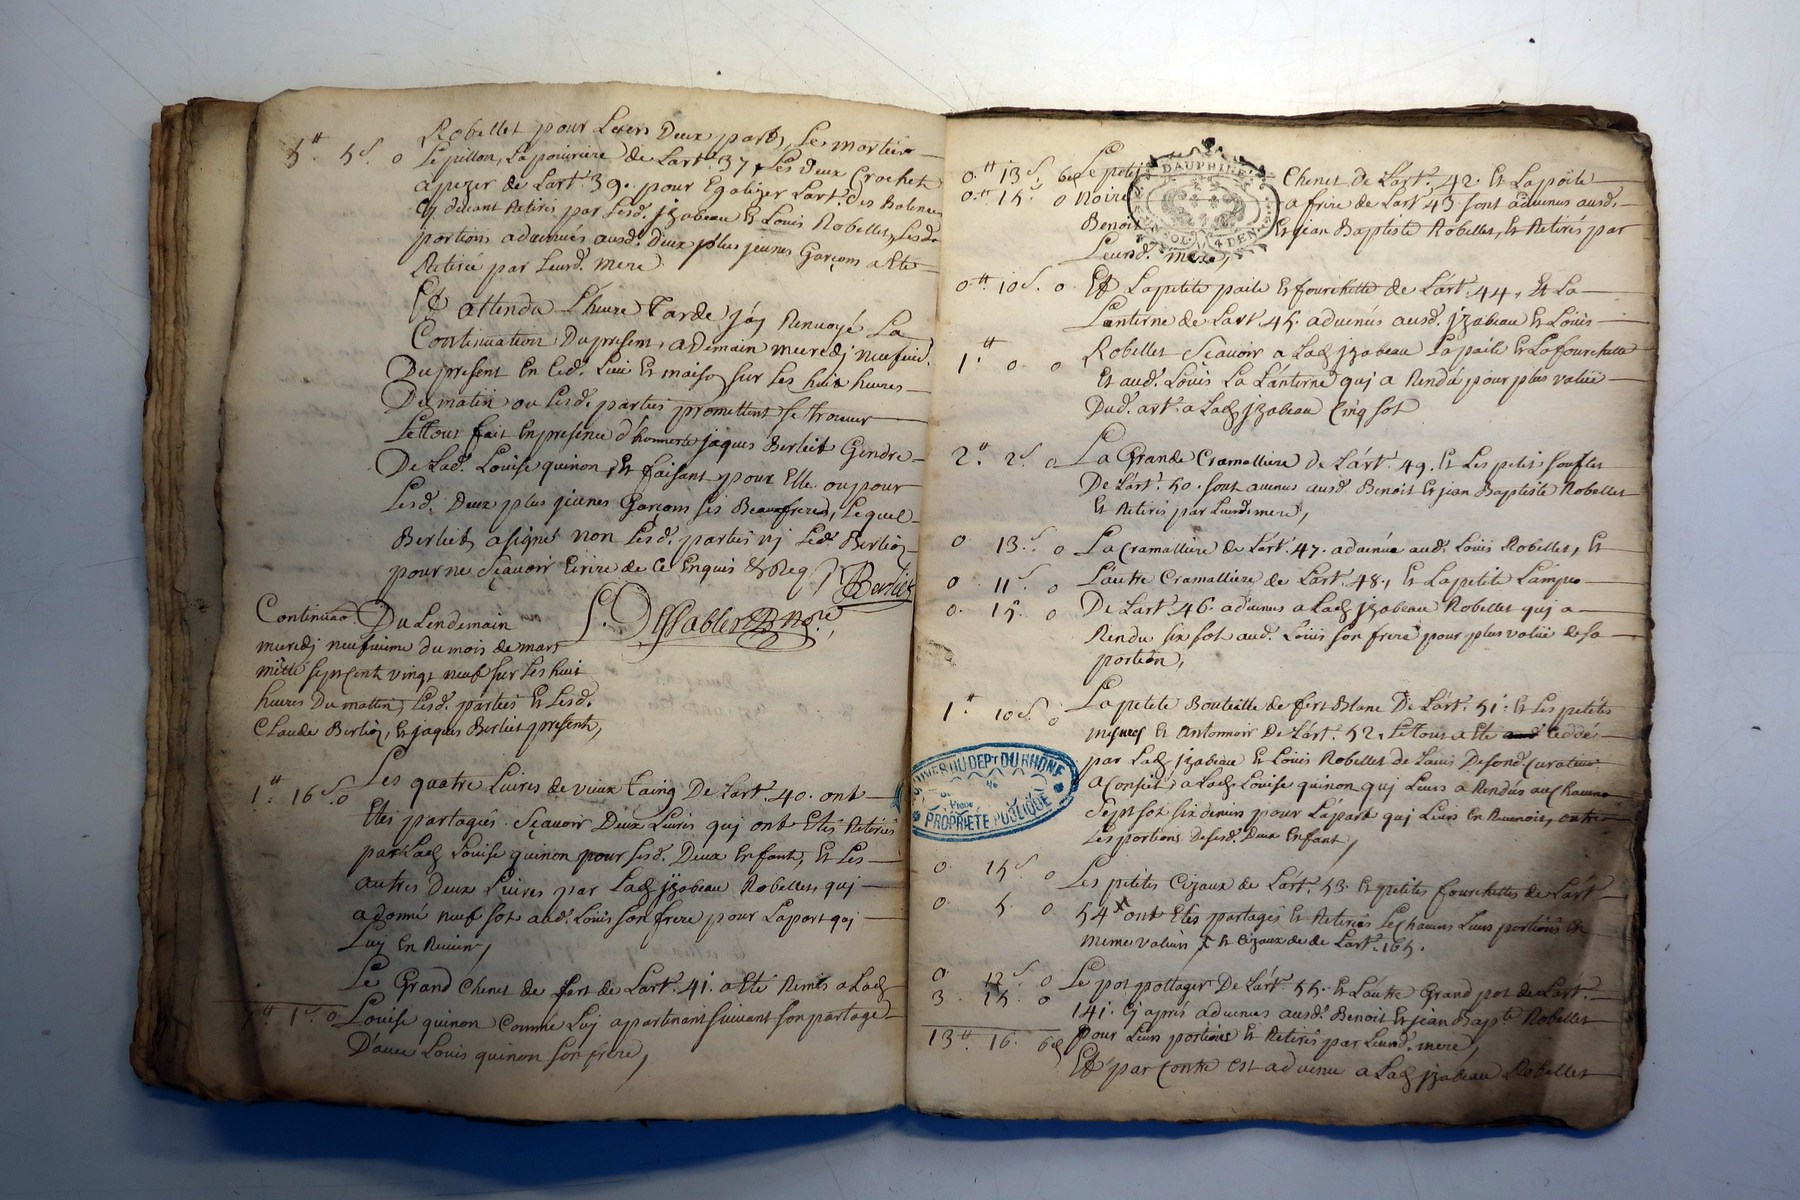 Robellet pour Leurs Deux parts, Le mortier
5tt 5s 0 Le pillon, La poivriere de Lart. 37, Les deux Crochets
a pezer de Lart. 39. pour Egalizer Lart. des Balences
Cy devant Retirés par Lesd. jzabeau Et Louis Robellet, Lesd.
portions advenues ausd. deux plus jeunes Garçons a Eté
Retirée par Leurd. mere
Et attendu L'heure Tarde j'aj Renvoyé La
Continuation Du present, a Demain mecredj neufvie.
Du present En Led. Lieu Et maison sur Les huit heures
Du matin ou Lesd. parties promettent se trouver
Le Tout fait En presence d'honnorte jaques Berliet Gendre
De Lad. Louise quinon, Et faisant pour Elle ou pour
Lesd. Deux plus jeunes Garçons ses Beaufreres, Lequel
Berliet a signé non Lesd. parties nj Led. Berlioz
pour ne Sçavoir Ecrire de Ce Enquis & Req.
Berliet
Continuão Du Lendemain
mecredj neufvieme du mois de mars
mille sept Cent vingt neuf sur Les huit
heures Du mattin, Lesd. parties Et Lesd.
Claude Berlioz, Et jaques Berliet presents,
Les quatre Livres de vieux Taing De Lart. 40. ont
1tt 16s 0
Etés partagés Sçavoir Deux Livres quj ont Etés Retirés
par Lad. Louise quinon pour Lesd. Deux Enfants, Et Les
autres Deux Livres par Lad. jzabeau Robellet, quj
a donné neuf sot aud. Louis son frere pour La part quj
Luj En Revient,
Le Grand Chenet de fert de Lart. 41. a Eté Remis a Lad.
Louise quinon Comme Luj apartenant suivant son partage
D'avec Louis quinon son frere,
DAUPHINE
4 DEN.
0tt 13s 6d Le petit Chenet de Lart. 42. Et La poële
0tt 15s 0 Noire a frire de Lart. 43 sont advenus ausd.
Benoit Et jean Baptiste Robellet, Et Retirés par
Leurd. mere,
0tt 10s 0 Et La petite paile Et fourchette de Lart. 44, Et La
Lanterne de Lart. 45. advenus ausd. jzabeau Et Louis
1tt 0 0 Robellet Sçavoir a Lad. jzabeau La paile Et La fourchette
Et aud. Louis La Lanterne quj a Rendu pour plus valüe
Dud. art. a Lad. jzabeau Cinq sot
2tt 2s 0 La Grande Cramalliere de Lart. 49. Et Les petits soufles
De Lart. 50. sont avenus ausd. Benoit Et jean Baptiste Robellet
Et Retirés par Leurd. mere,
0 13s 0 La Cramalliere de Lart. 47. advenüe aud. Louis Robellet, Et
0 11s 0 L'autre Cramalliere de Lart. 48., Et La petite Lampe
0 15 0 De Lart. 46. advenus a Lad. jzabeau Robellet quj a
Rendu six sot aud. Louis son frere pour plus valüe de sa
portion,
La petite Bouteille de fert Blanc De Lart. 51. Et Les petites
1tt 10s 0
mesures Et Antonnoir De Lart. 52. Le Tout a Eté Ceddé
par Lad. jzabeau Et Louis Robellet de Lavis De sond. Curateur
a Conseil, a Lad. Louise quinon quj Leurs a Rendus au Chacun
Sept sot six deniers pour La part quj Leurs En Revenoit, outre
Les portions Desesd. Deux Enfants,
ARCHIVES DU DEPT DU RHÔNE
PROPRIÉTÉ PUBLIQUE
0 15s 0 Les petites Cizaux de Lart. 53. Et petites fourchettes de Lart.
0 5 0 54 ont Etés partagés Et Retirées Le Chacuns Leurs portions En
meme valeurs Et Cizaux de de Lart. 165.
0 12s 0 Le pot pottager De Lart. 55. Et L'autre Grand pot de Lart.
3 15 0 141. Cj apres advenus ausd. Benoit Et jean Bapte Robellet
13tt 16 6d pour Leurs portions Et Retirés par Leurd. mere,
Et par Contre Est advenu a Lad. jzabeau Robellet